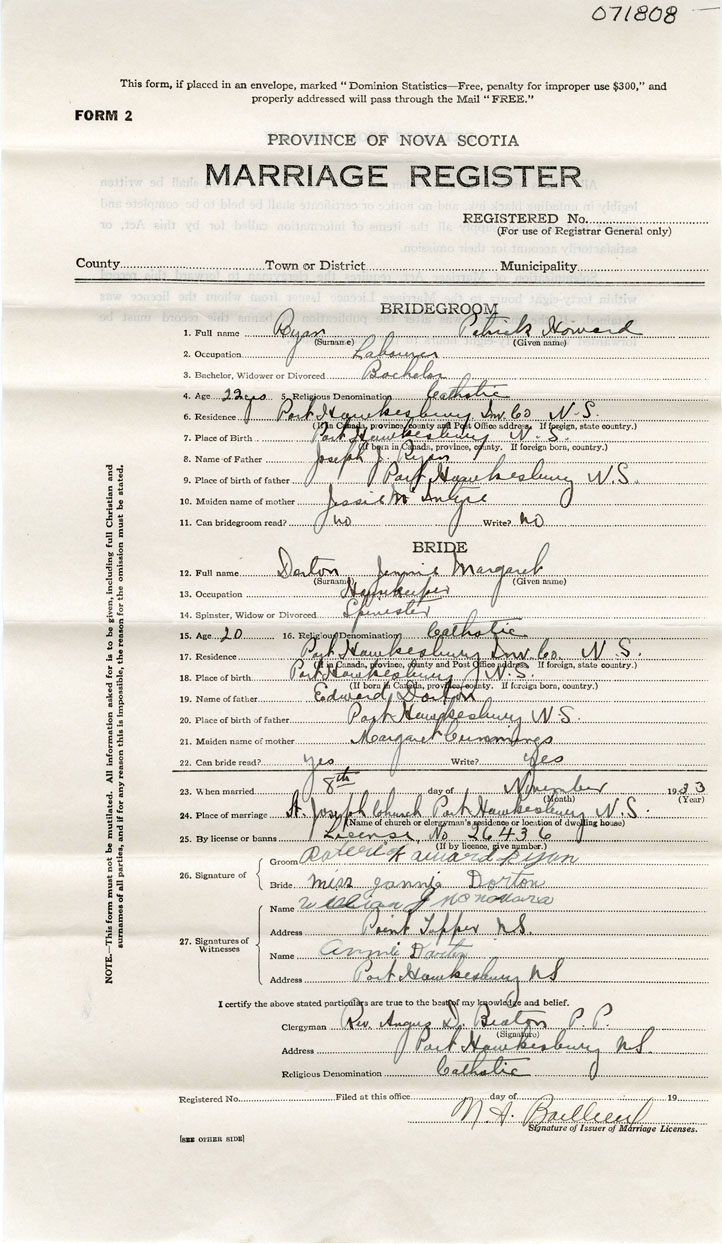 071808
This form, if placed in an envelope, marked "Dominion Statistics—Free, penalty for improper use $300," and
properly addressed will pass through the Mail "FREE."
FORM 2
PROVINCE OF NOVA SCOTIA
MARRIAGE REGISTER
REGISTERED No.
(For use of Registrar General only)
County Town or District Municipality
BRIDEGROOM
1. Full name Ryan Patrick Howard
(Surname) (Given name)
2. Occupation Labourer
3. Bachelor, Widower or Divorced Bachelor
4. Age 22 yrs 5. Religious Denomination Catholic
6. Residence Port Hawkesbury Inv. Co N.S.
(If in Canada, province, county and Post Office address. If foreign, state country.)
7. Place of Birth Port Hawkesbury N.S.
(If born in Canada, province, county. If foreign born, country.)
8. Name of Father Joseph J. Ryan
9. Place of birth of father Port Hawkesbury N.S.
10. Maiden name of mother Jessie
11. Can bridegroom read? no Write? no
BRIDE
12. Full name Dorton Jennie Margaret
(Surname) (Given name)
13. Occupation
14. Spinster, Widow or Divorced Spinister
15. Age 20 16. Religious Denomination Catholic
17. Residence Port Hawkesbury Inv. Co. N.S.
(If in Canada, province, county and Post Office address. If foreign, state country.)
18. Place of birth Port Hawkesbury N.S.
(If born in Canada, province, county. If foreign born, country.)
19. Name of father Edward Dorton
20. Place of birth of father Port Hawkesbury N.S.
21. Maiden name of mother Margaret Cummings
22. Can bride read? yes Write? yes
23. When married 8th day of November 1933
(Month) (Year)
24. Place of marriage St. Joseph Church Port Hawkesbury N.S.
(Name of church or clergyman's residence or location of dwelling house)
25. By license or banns License, No 26436
(If by licence, give number.)
26. Signature of
Groom Ryan
Bride miss Jannie Dorton
27. Signatures of Witnesses
Name William J
Address Point Tupper N.S.
Name Annie Dorton
Address Port Hawkesbury NS
I certify the above stated particulars are true to the best of my knowledge and belief.
Clergyman Rev. Angus D. Beaton P.P.
(Signature)
Address Port Hawkesbury N.S.
Religious Denomination Catholic
Registered No. Filed at this office day of 19
Signature of Issuer of Marriage Licenses.
[SEE OTHER SIDE]
NOTE.—This form must not be mutilated. All information asked for is to be given, including full Christian and
surnames of all parties, and if for any reason this is impossible, the reason for the omission must be stated.